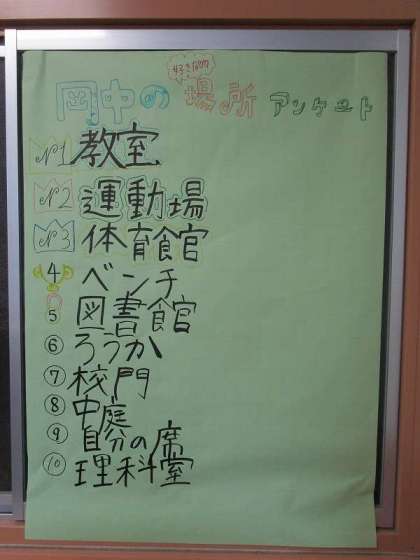 岡中の好きな場所アンケート
№1 教室
№2 運動場
№3 体育館
4 ベンチ
5 図書館
⑥ ろうか
⑦ 校門
⑧ 中庭
⑨ 自分の席
⑩ 理科室